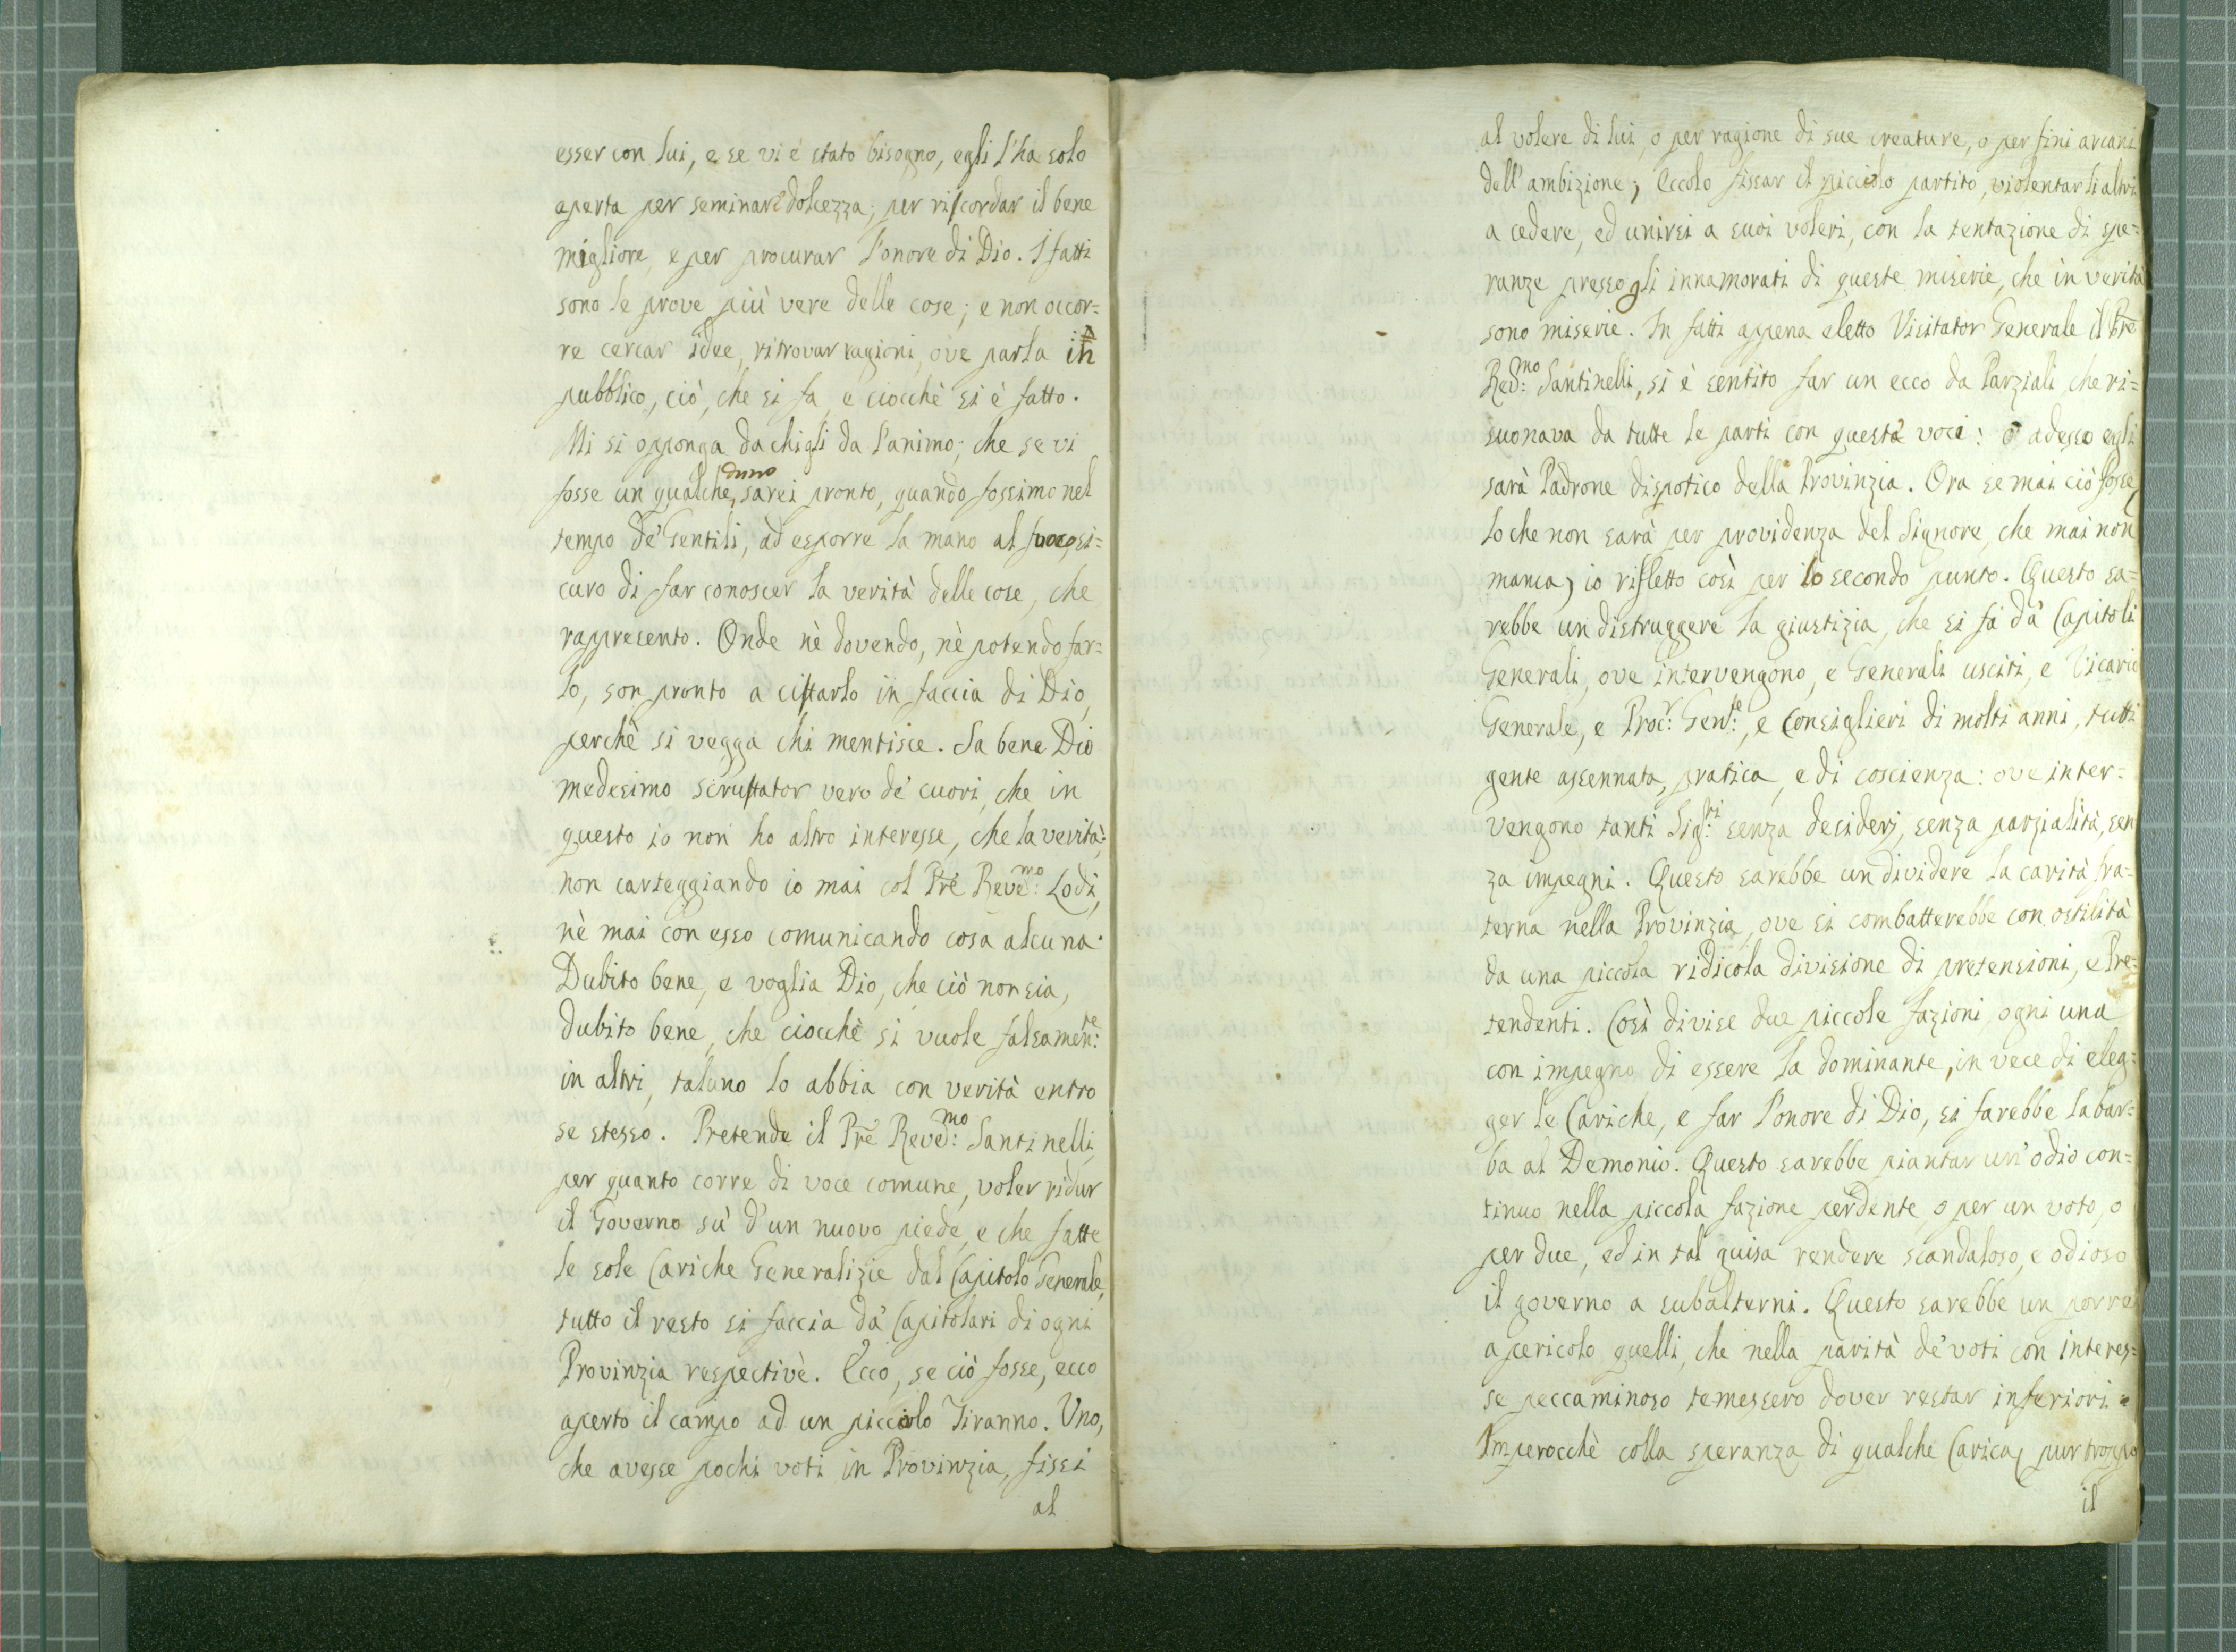 esser con lui, e se vi è stato bisogno, egli l'ha solo
aperta per seminar dolcezza, per ricordar il bene
migliore, e per procurar l'onore di Dio. I fatti
sono le prove più vere delle cose; e non occor=
re cercar idee, ritrovar ragioni, ove parla in
pubblico, ciò, che si fa, e ciocchè si è fatto.
Mi si opponga da chi gli da l'animo; che se vi
fosse un qualcheduno, sarei pronto, quando fossimo nel
tempo de' Gentili, ad esporre la mano al fuoco si=
curo di far conoscer la verità delle cose, che
rappresento. Onde nè dovendo, nè potendo far=
lo, son pronto a cittarlo in faccia di Dio,
perchè si vegga chi mentisce. Sa bene Dio
medesimo scruttator vero de' cuori, che in
questo io non ho altro interesse, che la verità;
non carteggiando io mai col Pre Reved:mo Lodi,
nè mai con esso comunicando cosa alcuna.
Dubito bene, e voglia Dio, che ciò non sia,
dubito bene, che ciocchè si vuole falsamen:te
in altri, taluno lo abbia con verità entro
se stesso. Pretende il Pre Reved:mo Santinelli,
per quanto corre di voce comune, voler ridur
il Governo sù d'un nuovo piede, e che fatte
le sole Cariche Generalizie dal Capitolo Generale,
tutto il resto si faccia da' Capitolari di ogni
Provinzia respectivè. Ecco, se ciò fosse, ecco
aperto il campo ad un picciolo Tiranno. Uno,
che avesse pochi voti in Provinzia, fissi
al
al volere di lui, o per ragione di sue creature, o per fini arcani
dell'ambizione; eccolo fissar il picciolo partito, violentar li altri
a cedere, ed unirsi a suoi voleri, con la tentazione di spe=
ranze presso gli innamorati di queste miserie, che in verità
sono miserie. In fatti appena eletto Visitator Generale il Pre
Red:mo Santinelli, si è sentito far un ecco da Parziali, che ri=
suonava da tutte le parti con questa voce: o adesso egli
sarà Padrone dispotico della Provinzia. Ora se mai ciò fosse,
lo che non sarà per providenza del Signore, che mai non
manca, io rifletto così per lo secondo punto. Questo sa=
rebbe un distruggere la giustizia, che si fa da' Capitoli
Generali, ove intervengono, e Generali usciti, e Vicario
Generale, e Proc:r Gen:le, e Consiglieri di molti anni, tutti
gente assennata, pratica, e di coscienza: ove inter=
vengono tanti Sig:ri senza desiderj, senza parzialità, sen
za impegni. Questo sarebbe un dividere la carità fra=
terna nella Provinzia, ove si combatterebbe con ostilità
da una piccola ridicola divisione di pretensioni, e Pre=
tendenti. Così divise due piccole fazioni, ogni una
con impegno di essere la dominante, in vece di eleg=
ger le Cariche, e far l'onore di Dio, si farebbe la bar=
ba al Demonio. Questo sarebbe piantar un'odio con=
tinuo nella piccola fazione perdente, o per un voto, o
per due, ed in tal guisa rendere scandaloso, e odioso
il governo a subalterni. Questo sarebbe un porre
a pericolo quelli, che nella parità de' voti con interes=
se peccaminoso temessero dover restar inferiori.
Imperocchè colla speranza di qualche Carica, pur troppo
il